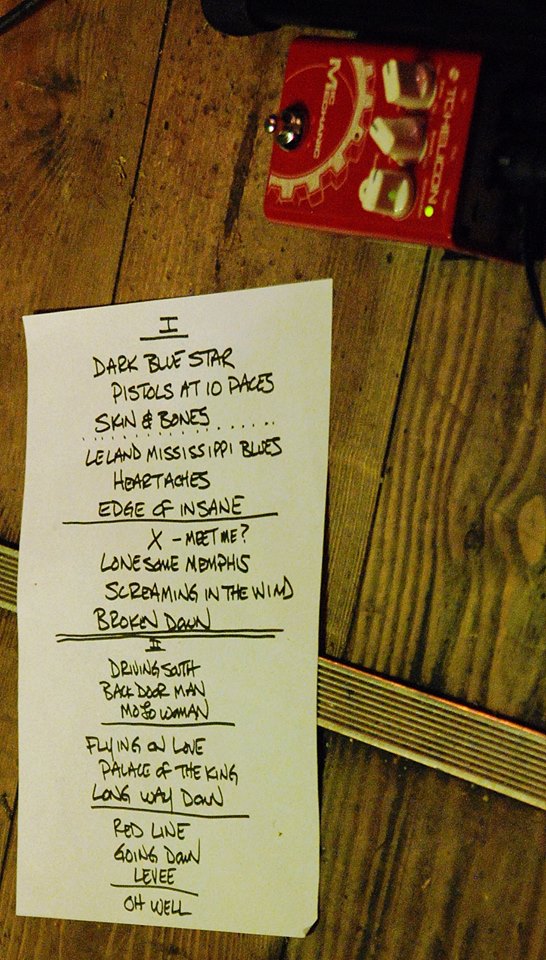 TCHELICON
MIC MECHANIC
I
DARK BLUE STAR
PISTOLS AT 10 PACES
SKIN & BONES
LELAND MISSISSIPPI BLUES
HEARTACHES
EDGE OF INSANE
X - MEET ME?
LONESOME MEMPHIS
SCREAMING IN THE WIND
BROKEN DOWN
II
DRIVING SOUTH
BACK DOOR MAN
MOJO WOMAN
FLYING ON LOVE
PALACE OF THE KING
LONG WAY DOWN
RED LINE
GOING DOWN
LEVEE
OH WELL